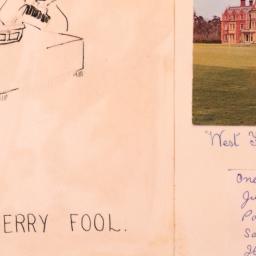 ERRY FOOL.
"West
One
Ju
Po
So